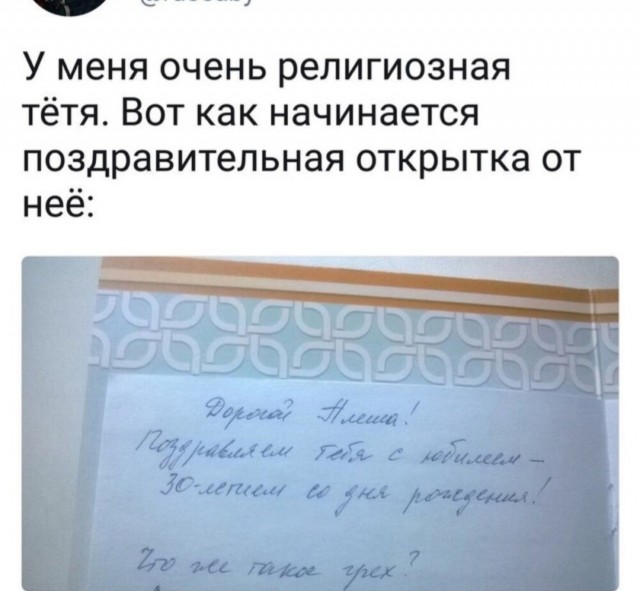 У меня очень религиозная
тётя. Вот как начинается
поздравительная открытка от
неё:
Дорогой Алеша!
Поздравляем тебя с юбилеем –
30-летием со дня рождения!
Что же такое грех?